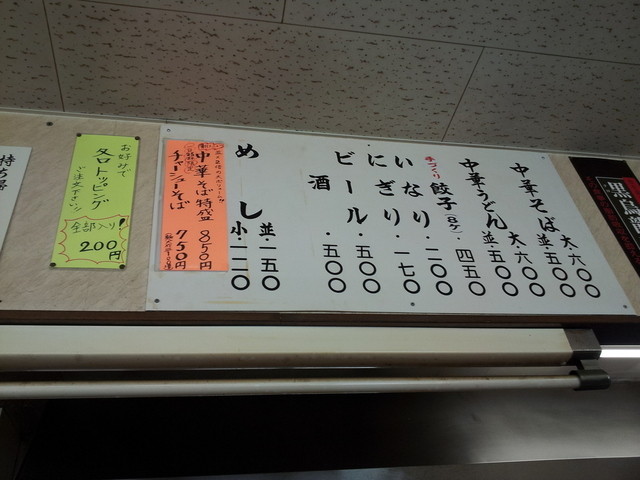 中華そば 大・六〇〇
並・五〇〇
中華うどん 大・六〇〇
並・五〇〇
手づくり 餃子(8ケ)・四五〇
いなり・二〇〇
にぎり・一七〇
ビール・五〇〇
酒・五〇〇
めし 並・一五〇
小・一一〇
中華そば特盛 850円
チャーシューそば 750円
お好みで
各口トッピング
ご注文下さい!
全部入り!
200円